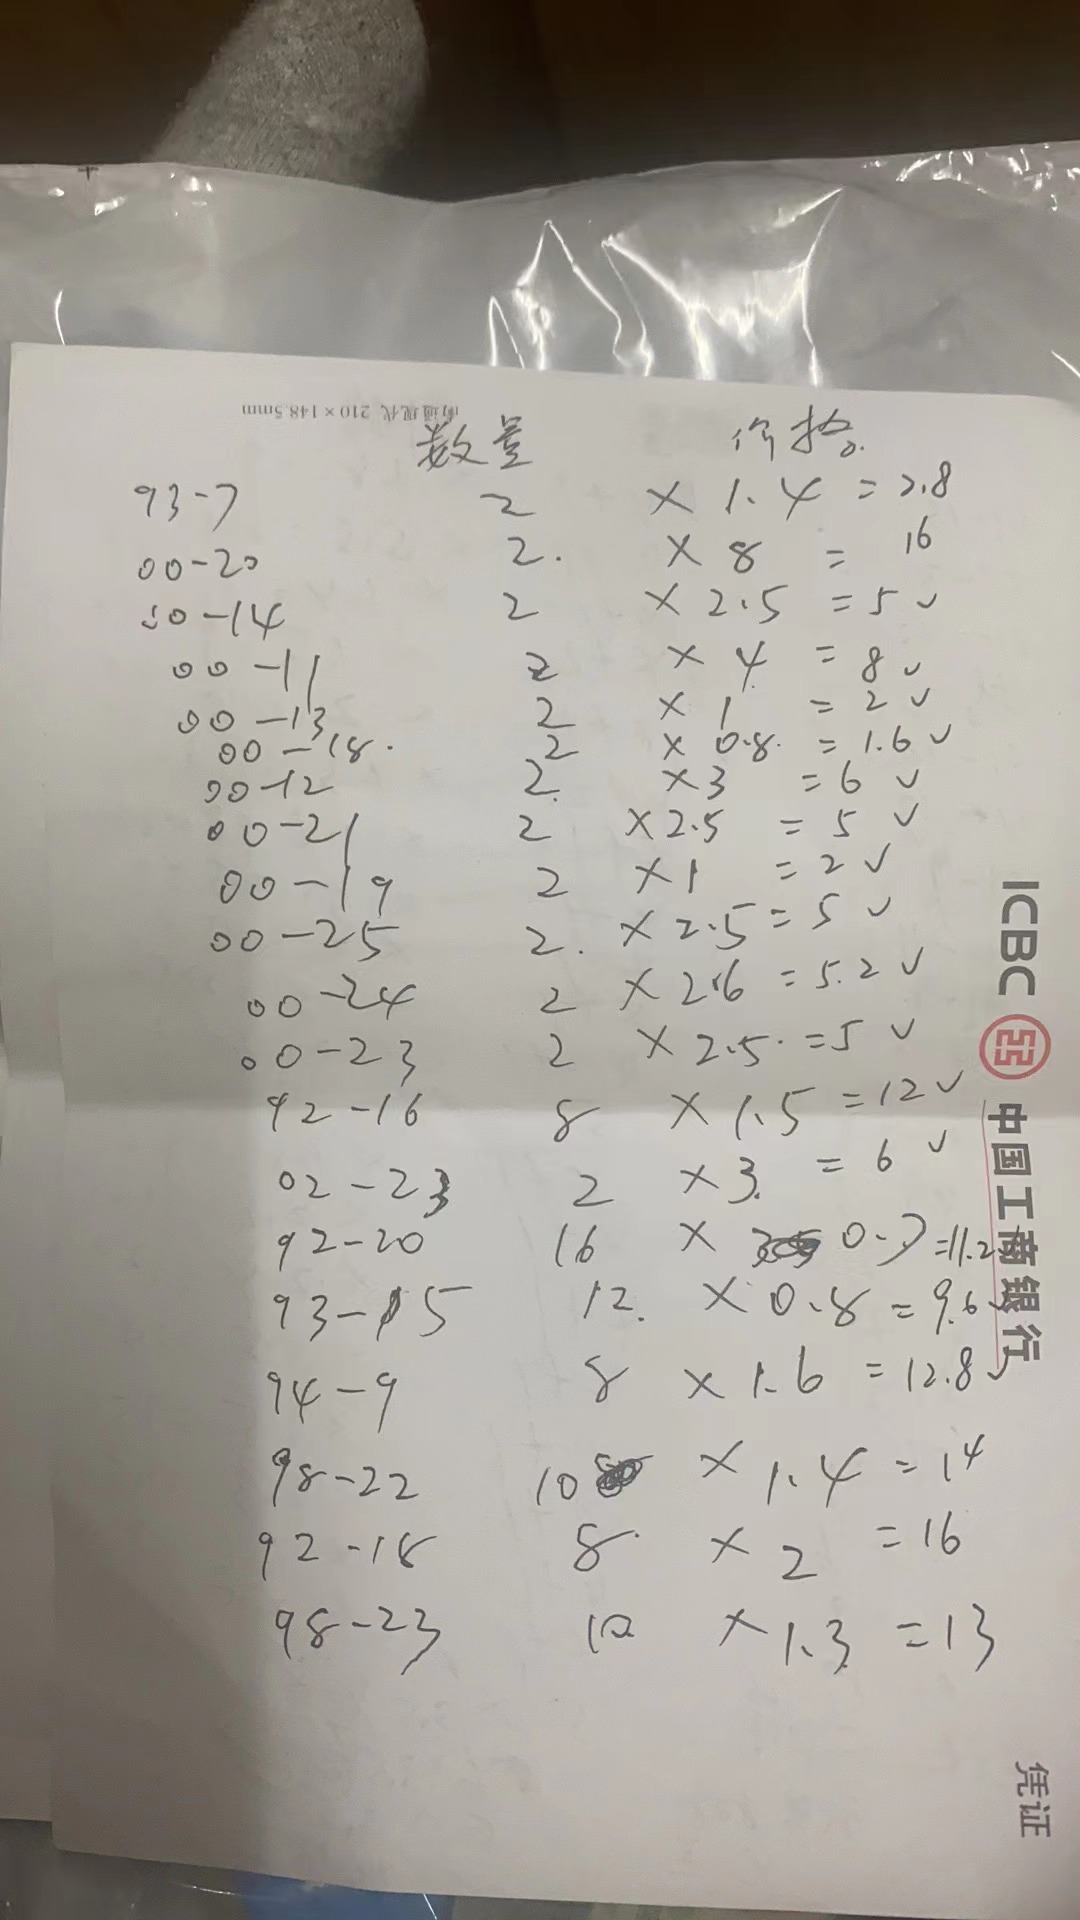 南通现代 210×148.5mm
数量 价格
93-7 2 × 1.4 = 2.8
00-20 2. × 8 = 16
00-14 2 × 2.5 = 5 ✓
00-11 2 × 4 = 8 ✓
00-13 2 × 1 = 2 ✓
00-18. 2 × 0.8 = 1.6 ✓
00-12 2. × 3 = 6 ✓
00-21 2 × 2.5 = 5 ✓
00-19 2 × 1 = 2 ✓
00-25 2. × 2.5 = 5 ✓
00-24 2 × 2.6 = 5.2 ✓
00-23 2 × 2.5 = 5 ✓
92-16 8 × 1.5 = 12 ✓
02-23 2 × 3. = 6 ✓
92-20 16 × 0.7 = 11.2
93-15 12. × 0.8 = 9.6 ✓
94-9 8 × 1.6 = 12.8 ✓
98-22 10 × 1.4 = 14
92-18 8 × 2 = 16
98-23 10 × 1.3 = 13
ICBC 中国工商银行
凭证